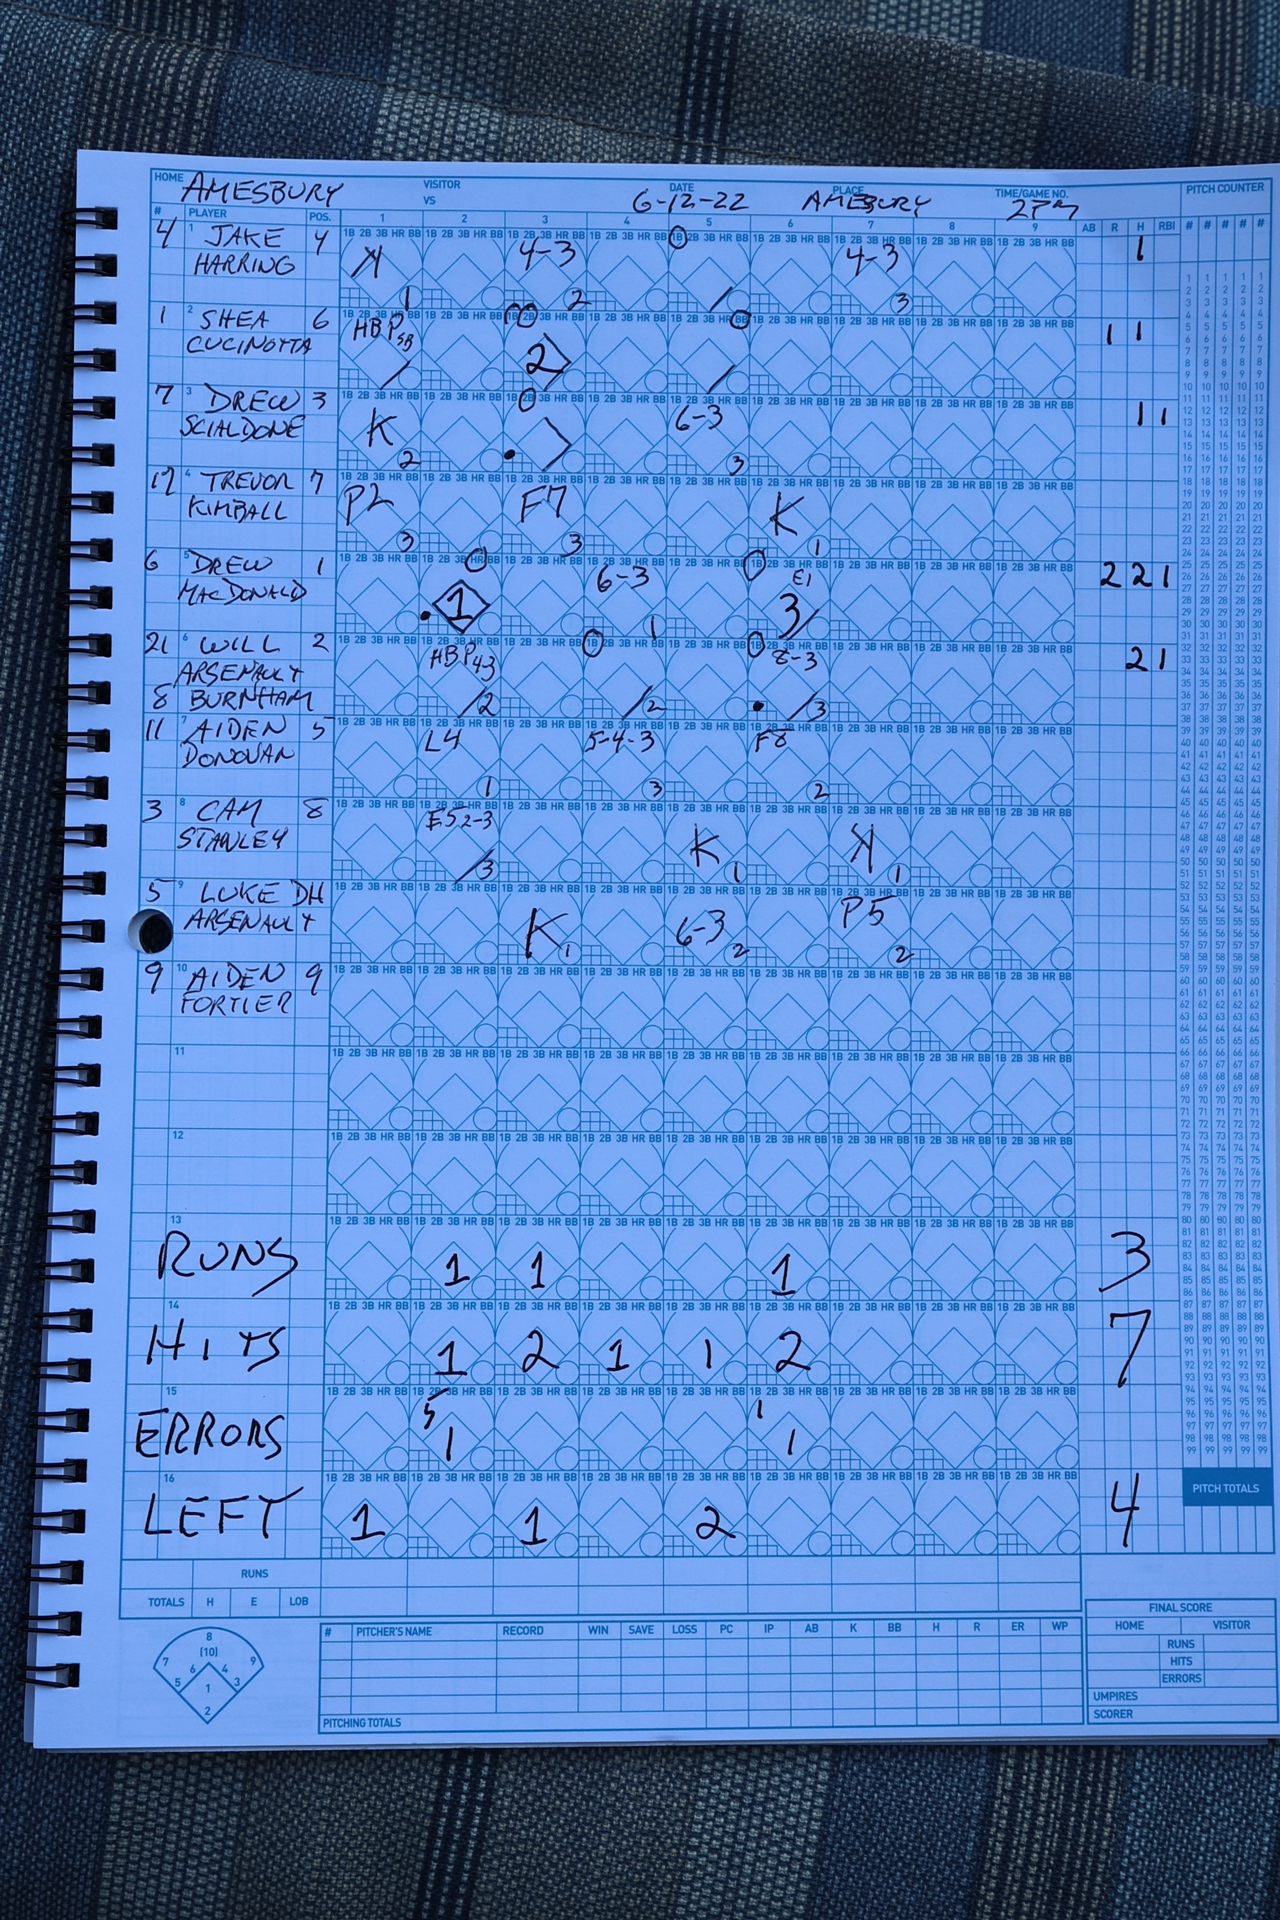 HOME AMESBURY VISITOR VS DATE 6-12-22 PLACE AMESBURY TIME/GAME NO. 2PM PITCH COUNTER
# PLAYER POS. 1 2 3 4 5 6 7 8 9 AB R H RBI # # # # #
4 1 JAKE HARRING 4 K 1 4-3 2 4-3 3 1
1 2 SHEA CUCINOTTA 6 HBP SB 2 1 1
7 3 DREW SCIALDONE 3 K 2 6-3 3 1 1
17 4 TREVOR KIMBALL 7 P2 3 F7 3 K 1
6 5 DREW MACDONALD 1 1 6-3 1 E1 3 2 2 1
21 6 WILL ARSENAULT 2 HBP 43 2 2 8-3 3 2 1
8 BURNHAM
11 7 AIDEN DONOVAN 5 L4 1 5-4-3 3 F8 2
3 8 CAM STANLEY 8 E5 2-3 3 K 1 K 1
5 9 LUKE ARSENAULT DH K 1 6-3 2 P5 2
9 10 AIDEN FORTIER 9
11
12
13 RUNS 1 1 1 3
14 HITS 1 2 1 1 2 7
15 ERRORS 5 1 1 1
16 LEFT 1 1 2 4
PITCH TOTALS
RUNS
TOTALS H E LOB
8
(10)
7 6 4 9
5 1 3
2
# PITCHER'S NAME RECORD WIN SAVE LOSS PC IP AB K BB H R ER WP
PITCHING TOTALS
FINAL SCORE
HOME VISITOR
RUNS
HITS
ERRORS
UMPIRES
SCORER